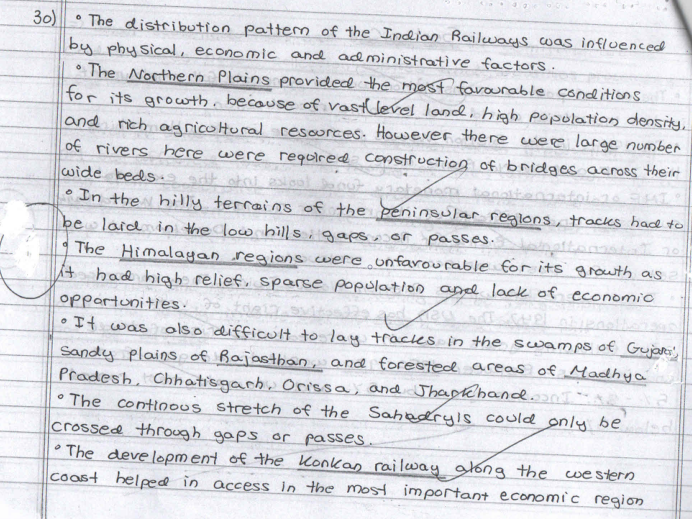 30) • The distribution pattern of the Indian Railways was influenced
by physical, economic and administrative factors.
• The Northern Plains provided the most favourable conditions
for its growth, because of vast level land, high population density,
and rich agricultural resources. However there were large number
of rivers here were required construction of bridges across their
wide beds.
• In the hilly terrains of the peninsular regions, tracks had to
be laid in the low hills, gaps, or passes.
• The Himalayan regions were unfavourable for its growth as
it had high relief, sparse population and lack of economic
opportunities.
• It was also difficult to lay tracks in the swamps of Gujarat,
Sandy plains of Rajasthan, and forested areas of Madhya
Pradesh, Chhatisgarh, Orissa, and Jharkhand.
• The continous stretch of the could only be
crossed through gaps or passes.
• The development of the Konkan railway along the western
coast helped in access in the most important economic region